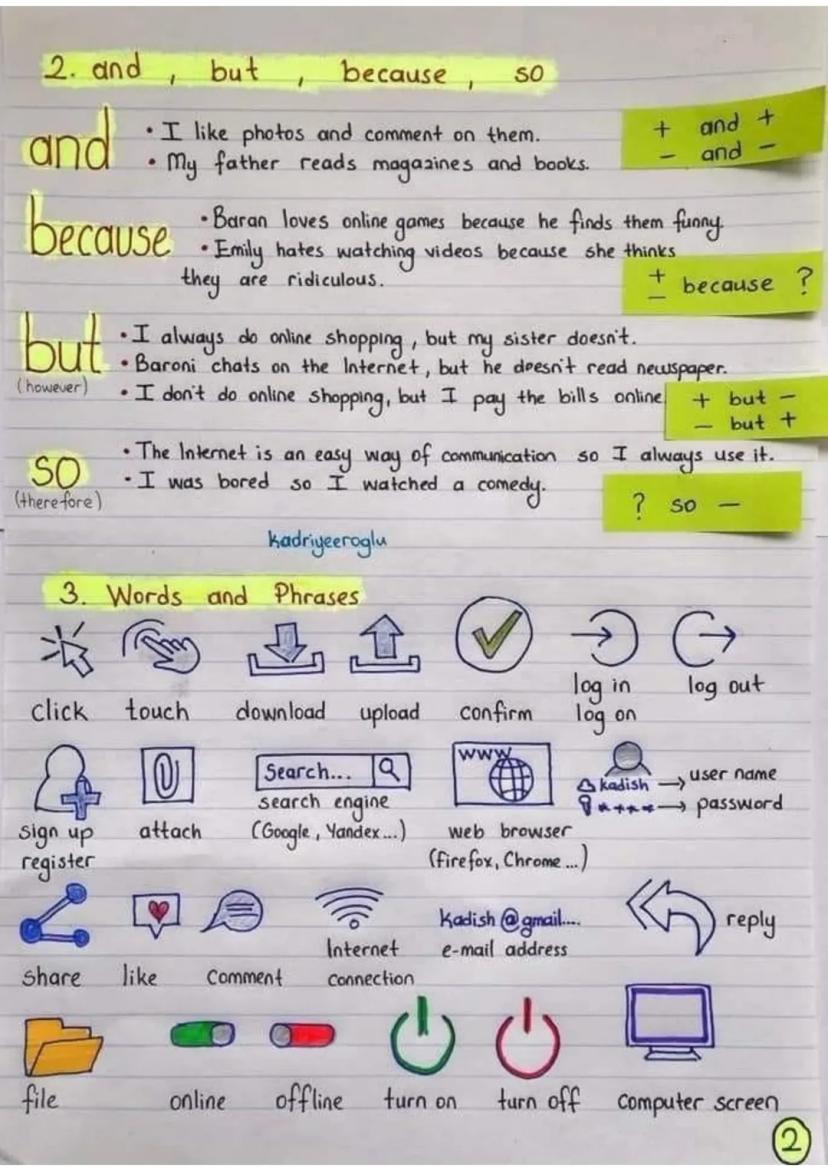 2. and , but , because , so
and
• I like photos and comment on them.
• My father reads magazines and books.
+ and +
- and -
because
• Baran loves online games because he finds them funny.
• Emily hates watching videos because she thinks
they are ridiculous.
± because ?
but
(however)
• I always do online shopping, but my sister doesn't.
• Baroni chats on the Internet, but he doesn't read newspaper.
• I don't do online shopping, but I pay the bills online
+ but -
- but +
so
(therefore)
• The Internet is an easy way of communication so I always use it.
• I was bored so I watched a comedy.
? so -
kadriyeeroglu
3. Words and Phrases
click
touch
download
upload
confirm
log in
log on
log out
sign up
register
attach
Search...
search engine
(Google, Yandex...)
www
web browser
(firefox, Chrome...)
kadish → user name
**** → password
share
like
comment
Internet
connection
kadish@gmail....
e-mail address
reply
file
online
offline
turn on
turn off
computer screen
2